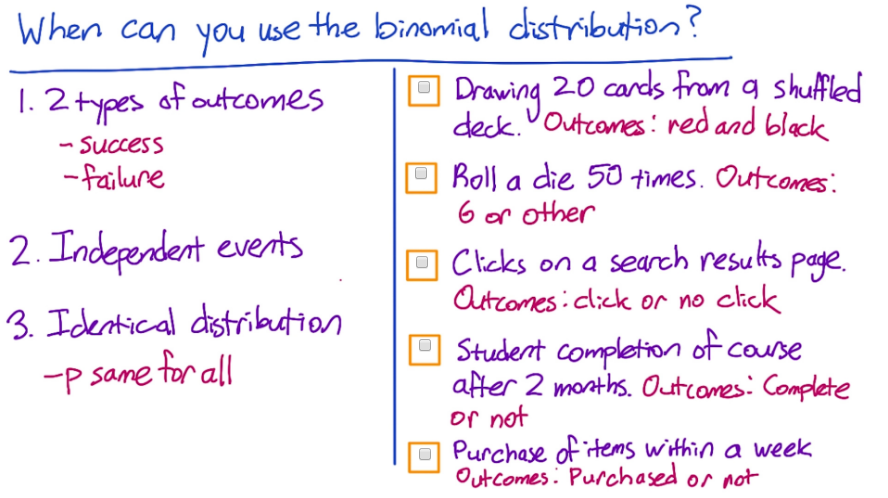 When can you use the binomial distribution?
1. 2 types of outcomes
- success
- failure
2. Independent events
3. Identical distribution
- p same for all
Drawing 20 cards from a shuffled
deck. Outcomes: red and black
Roll a die 50 times. Outcomes:
6 or other
Clicks on a search results page.
Outcomes: click or no click
Student completion of course
after 2 months. Outcomes: Complete
or not
Purchase of items within a week
Outcomes: Purchased or not